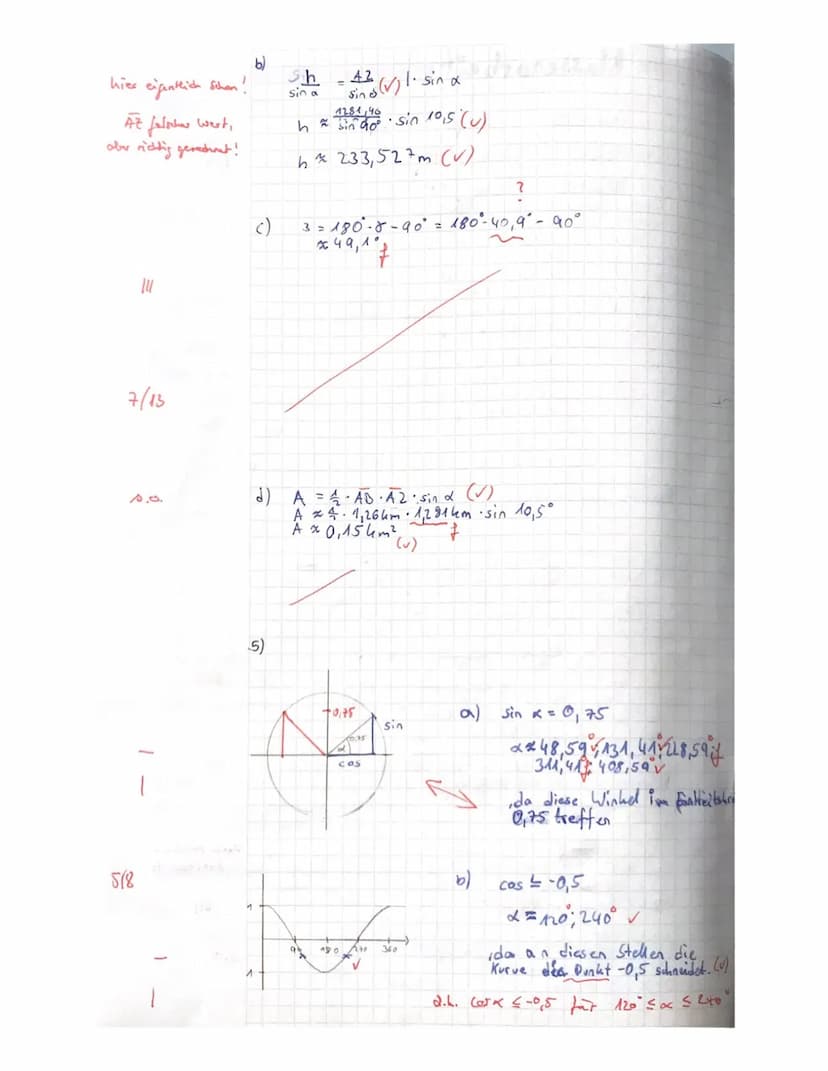 b)
hier eigentlich schon!
h/sin α = AZ/sin δ (✓) | · sin α
AZ falscher Wert,
aber richtig gerechnet!
h ≈ 1281,40/sin 90° · sin 10,5° (✓)
h ≈ 233,527m (✓)
?
c) 3 = 180°-γ-90° = 180°-40,9°-90°
≈ 49,1° f
III
7/13
s.o.
d) A = 1/2 · AB · AZ · sin α (✓)
A ≈ 1/2 · 1,26km · 1,281km · sin 10,5°
A ≈ 0,15km² f
(✓)
5)
0,75
sin
0,75
α
cos
a) sin α = 0,75
α ≈ 48,59°✓; 131,41°✓; 228,59° f
311,41° f; 408,59° ✓
, da diese Winkel im
0,75 treffen
5/8
b) cos ≤ -0,5
α = 120°; 240° ✓
1
90 180 240 360
✓
-1
, da an diesen Stellen die
Kurve den Punkt -0,5 schneidet. (✓)
d.h. cos α ≤ -0,5 für 120° ≤ α ≤ 240°